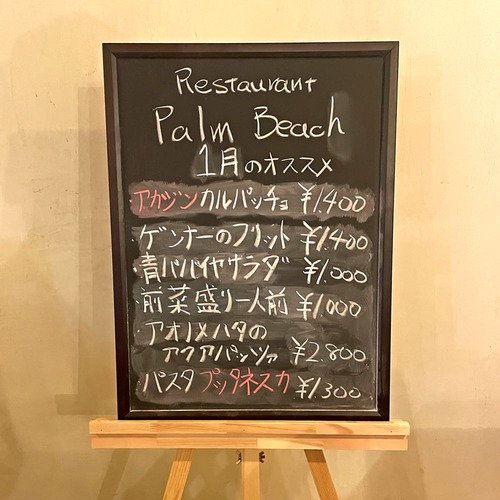 Restaurant
Palm Beach
1月のオススメ
アカジンカルパッチョ ¥1,400
・ゲンナーのフリット ¥1,400
・青パパイヤサラダ ¥1,000
・前菜盛り一人前 ¥1,000
・アオノメハタの
アクアパッツァ ¥2,800
・パスタ プッタネスカ ¥1,300